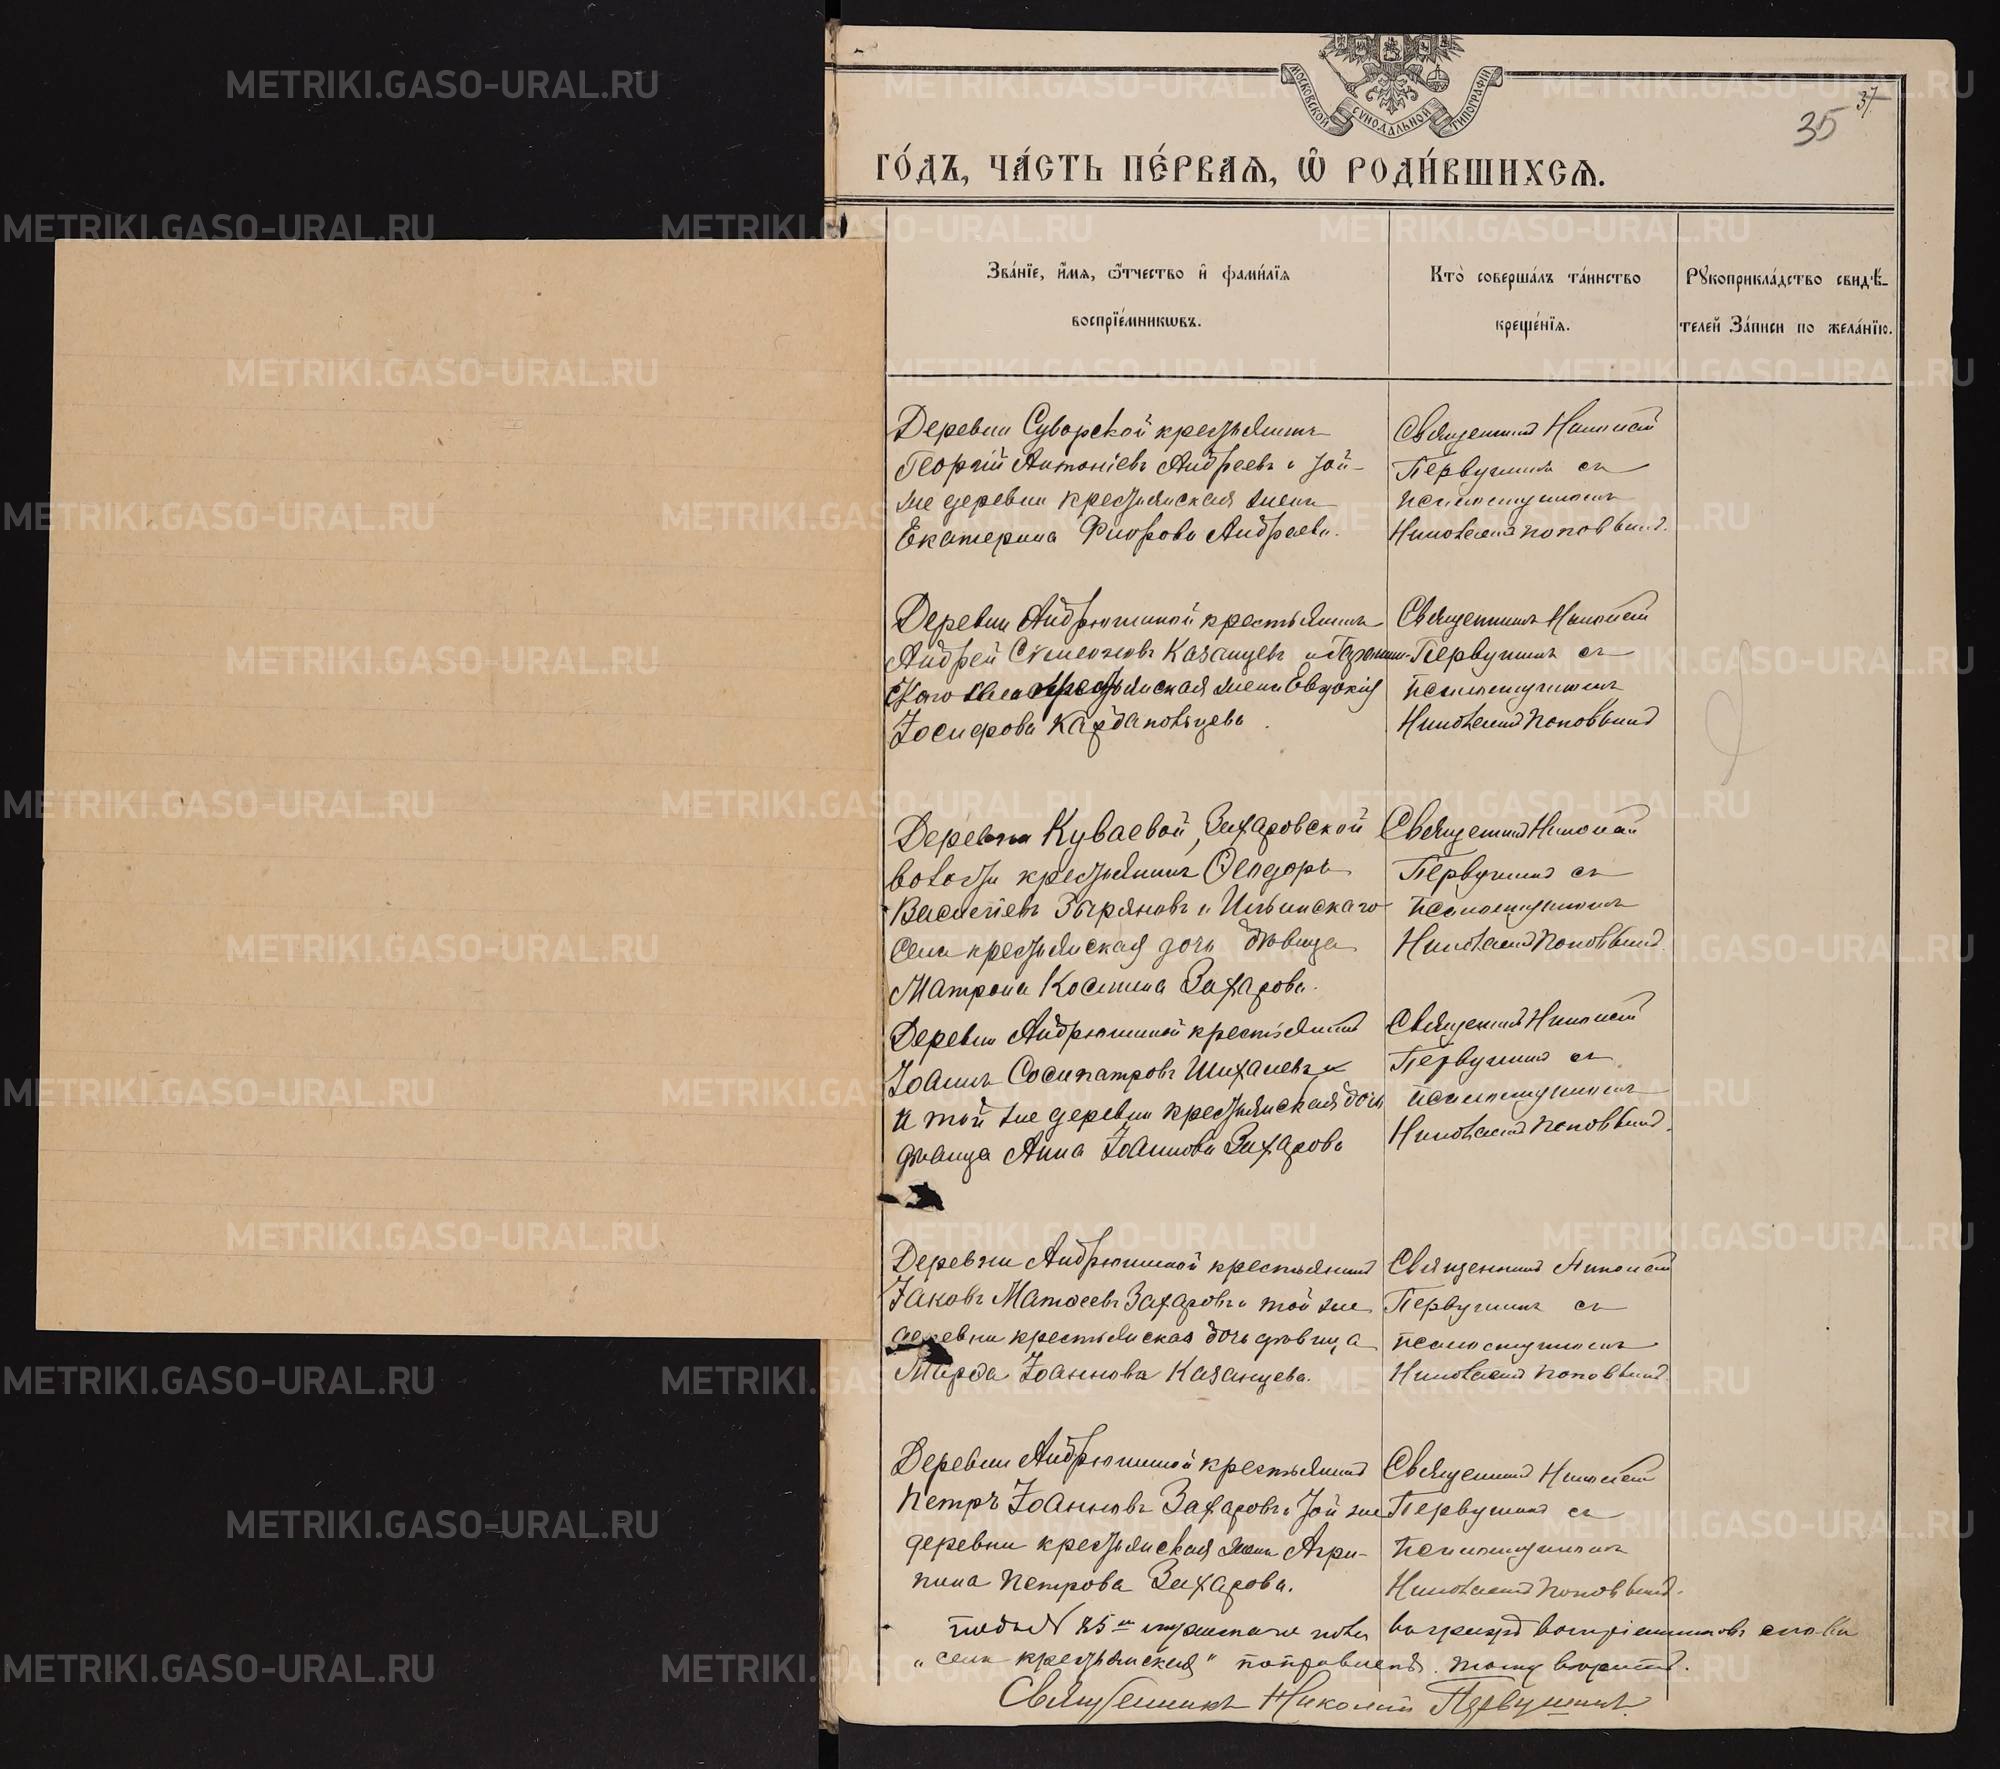 МОСКОВСКОЙ СѴНОДАЛЬНОЙ ТИПОГРАФІИ
37
35
ГО́ДЪ, ЧА́СТЬ ПЕ́РВАѦ, Ѡ҆ РОДИ́ВШИХСѦ.
Зва́нїе, и҆́мѧ, ѻ҆́тчество и҆ фами́лїѧ
воспрїе́мникѡвъ.
Кто̀ соверша́лъ та́инство
креще́нїѧ.
Рꙋкоприкла́дство свидѣ́-
телей за́писи по жела́нїю.
Деревни Суворской крестьянинъ
Георгій Антоніевъ Андреевъ и той-
же деревни крестьянская жена
Екатерина Андреева.
Священникъ Николай
Первушинъ съ
псаломщикомъ
Николаемъ Поповымъ.
Деревни Андрюшиной крестьянинъ
Андрей Симеоновъ Казанцевъ и
села крестьянская жена Евдокія
Іосифова
Священникъ Николай
Первушинъ съ
псаломщикомъ
Николаемъ Поповымъ
Деревни Куваевой, Захаровской
волости крестьянинъ Ѳеодоръ
Василіевъ Зыряновъ и Ильинскаго
села крестьянская дочь дѣвица
Матрона Космина Захарова.
Священникъ Николай
Первушинъ съ
псаломщикомъ
Николаемъ Поповымъ.
Деревни Андрюшиной крестьянинъ
Іоаннъ Сосипатровъ Шихалевъ
и той же деревни крестьянская дочь
дѣвица Анна Іоаннова Захарова
Священникъ Николай
Первушинъ съ
псаломщикомъ
Николаемъ Поповымъ.
Деревни Андрюшиной крестьянинъ
Іаковъ Матѳеевъ Захаровъ и той же
деревни крестьянская дочь дѣвица
Марѳа Іоаннова Казанцева.
Священникъ Николай
Первушинъ съ
псаломщикомъ
Николаемъ Поповымъ.
Деревни Андрюшиной крестьянинъ
Петръ Іоанновъ Захаровъ и той же
деревни крестьянская жена Агри-
пина Петрова Захарова.
Священникъ Николай
Первушинъ съ
псаломщикомъ
Николаемъ Поповымъ.
подъ N 85м воспріемниковъ слова
„села крестьянская" тому вѣрить.
Священникъ Николай Первушинъ.
METRIKI.GASO-URAL.RU